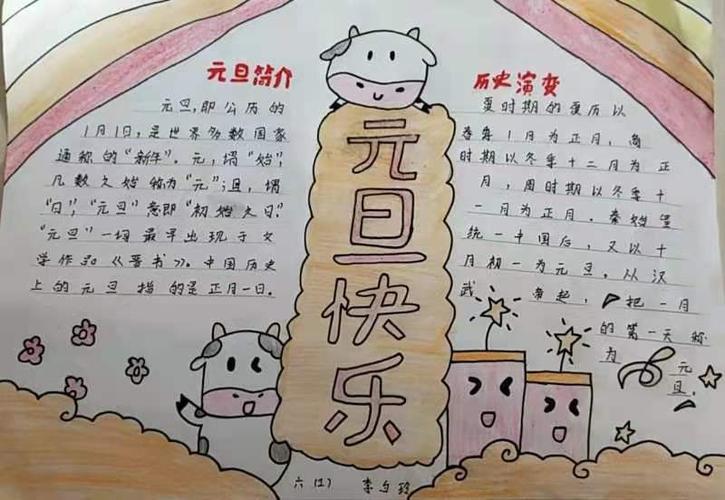 元旦简介
元旦,即公历的
1月1日,是世界多数国家
通称的“新年”。元,谓“始”,
凡数之始称为“元”;旦,谓
“日”;“元旦”意即“初始之日”。
“元旦”一词最早出现于文
学作品《晋书》。中国历史
上的元旦指的是正月一日。
元旦快乐
历史演变
夏时期的夏历以
春季1月为正月,商
时期以冬季十二月为正
月,周时期以冬季十
一月为正月。秦始皇
统一中国后,又以十
月初一为元旦。从汉
武帝起,把一月
的第一天称
为元
旦。
六(1) 李